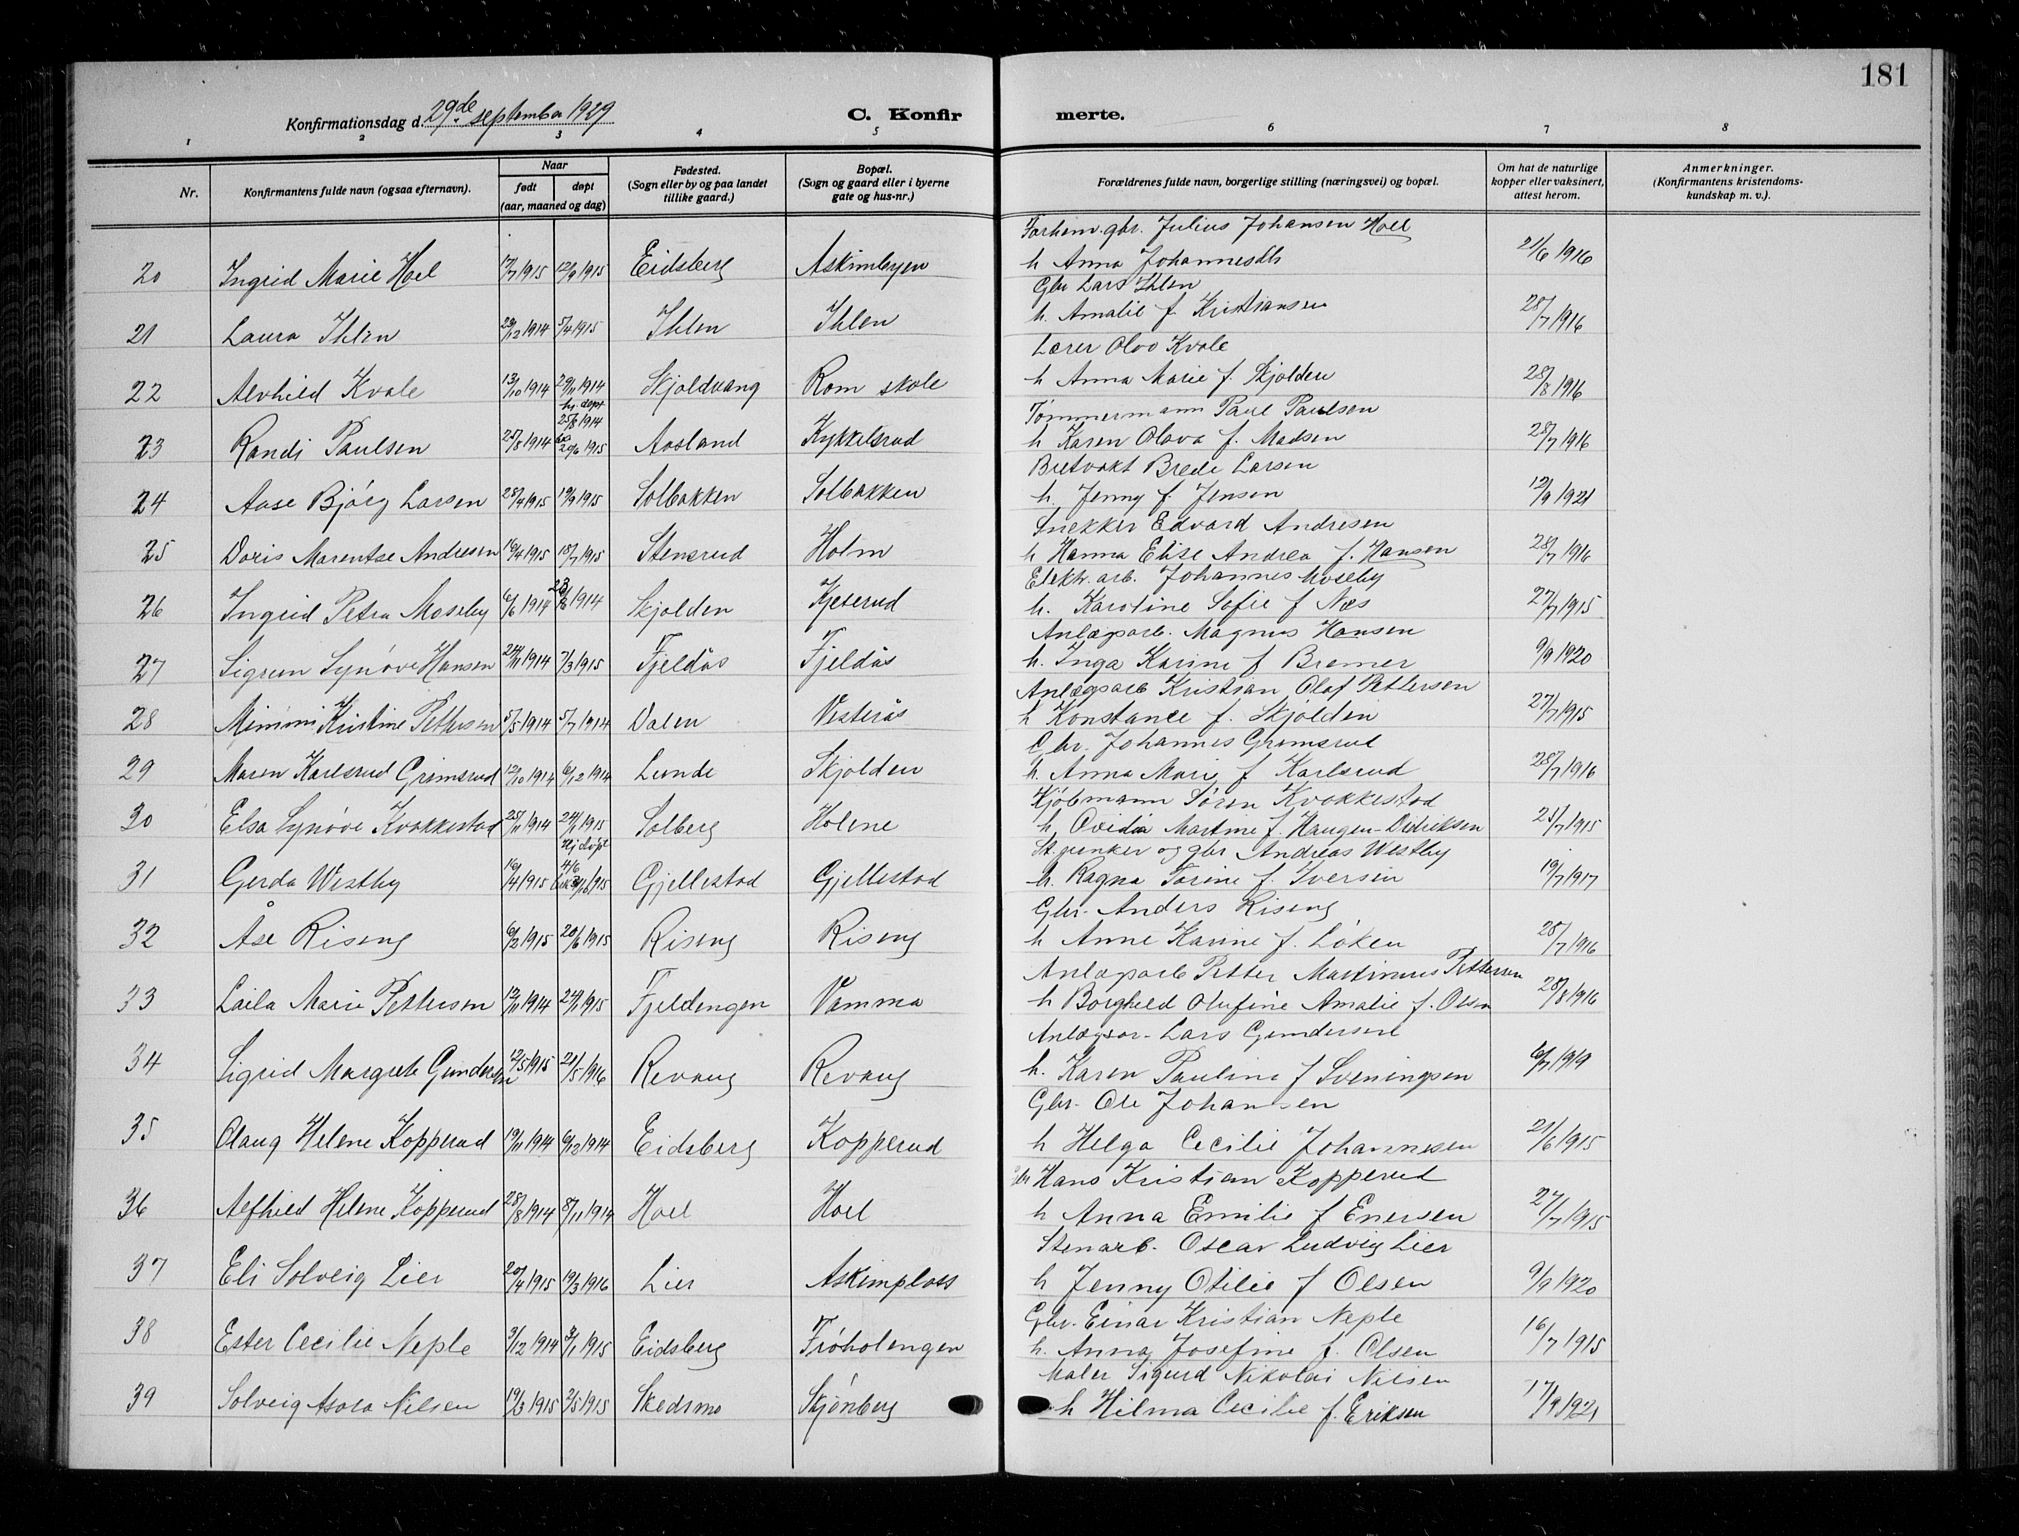 181
Konfirmationsdag d. 29de september 1929
C. Konfirmerte.
1 2 3 4 5 6 7 8
Nr. Konfirmantens fulde navn (ogsaa efternavn). Naar født døpt (aar, maaned og dag) Fødested. (Sogn eller by og paa landet tillike gaard.) Bopæl. (Sogn og gaard eller i byerne gate og hus-nr.) Forældrenes fulde navn, borgerlige stilling (næringsvei) og bopæl. Om hat de naturlige kopper eller vaksinert, attest herom. Anmerkninger. (Konfirmantens kristendomskundskap m. v.).
Forhenv. gbr. Julius Johansen Hoel
20 Ingrid Marie Hoel 17/7 1915 12/9 1915 Eidsberg Askimbyen h Anna Johannesdt 21/6 1916
Gbr Lars Ihlen
21 Laura Ihlen 29/12 1914 5/4 1915 Ihlen Ihlen h. Amalie f. Kristiansen 28/7 1916
Lærer Olav Kvale
22 Alvhild Kvale 13/10 1914 29/11 1914 Skjoldvang Rom skole h Anna Marie f. Skjolden 28/8 1916
hj. døpt
Tømmermann Paul Paulsen
23 Randi Paulsen 25/8 1914 25/8 1914 20/6 1915 Aasland Kykkelsrud h Karen Olava f. Madsen 28/7 1916
Bretvakt Brede Larsen
24 Aase Bjørg Larsen 28/4 1915 19/9 1915 Solbakken Solbakken h. Jenny f. Jensen 12/9 1921
Snekker Edvard Andresen
25 Doris Marentse Andresen 16/4 1915 18/7 1915 Stensrud Holm h Hanna Elise Andrea f. Hansen 28/7 1916
Elektr. arb. Johannes Moseby
26 Ingrid Petra Moseby 6/6 1914 23/8 1914 Skjolden Kjeserud h. Karoline Sofie f Næs 27/7 1915
Anlægsarb. Magnus Hansen
27 Sigrun Synøve Hansen 24/11 1914 7/3 1915 Fjeldås Fjeldås h. Inga Karine f Bremer 9/9 1920
Anlægsarb Kristian Olaf Pettersen
28 Mimmi Kristine Pettersen 5/5 1914 5/7 1914 Dalen Vesterås h Konstance f. Skjolden 27/7 1915
Gbr. Johannes Grimsrud
29 Maren Karlsrud Grimsrud 12/10 1914 6/12 1914 Lunde Skjolden h. Anna Marie f Karlsrud 28/7 1916
Kjøbmann Søren Kvakkestad
30 Elsa Synøve Kvakkestad 25/11 1914 24/1 1915 Solberg Holene h. Ovidia Martine f. Haugen-Didriksen 21/7 1915
Hj døpt
St.punker og gbr Andreas Westby
31 Gerda Westby 16/4 1915 4/6 1915 Gjellestad Gjellestad h. Ragna Torine f. Iversen 19/7 1917
Gbr. Anders Riseng
32 Åse Riseng 6/2 1915 20/6 1915 Riseng Riseng h Anne Karine f. Løken 28/7 1916
Anlægsarb Petter Martinius Pettersen
33 Laila Marie Pettersen 12/11 1914 24/1 1915 Fjeldengen Vamma h Borghild Olufine Amalie f. Olsen 28/8 1916
Anlægsar- Lars Gundersen
34 Sigrid Margrete Gundersen 12/5 1915 21/5 1916 Revaug Revaug h. Karen Pauline f Sveningsen 6/7 1919
Gbr. Ole Johansen
35 Olaug Helene Kopperud 19/11 1914 6/12 1914 Eidsberg Kopperud h Helga Cecilie Johannesen 21/6 1915
Gbr Hans Kristian Kopperud
36 Alfhild Helene Kopperud 28/8 1914 8/11 1914 Hoel Hoel h Anna Emilie f Enersen 27/7 1915
Stenarb. Oscar Ludvig Lier
37 Eli Solveig Lier 20/4 1915 19/3 1916 Lier Askimplass h Jenny Otilie f Olsen 9/9 1920
Gbr. Einar Kristian Neple
38 Ester Cecilie Neple 3/12 1914 3/1 1915 Eidsberg Frøholengen h. Anna Josefine f. Olsen 16/7 1915
Maler Sigurd Nikolai Nilsen
39 Solveig Asora Nilsen 19/3 1915 2/5 1915 Skedsmo Skjønberg h Hilma Cecilie f. Eriksen 17/9 1921